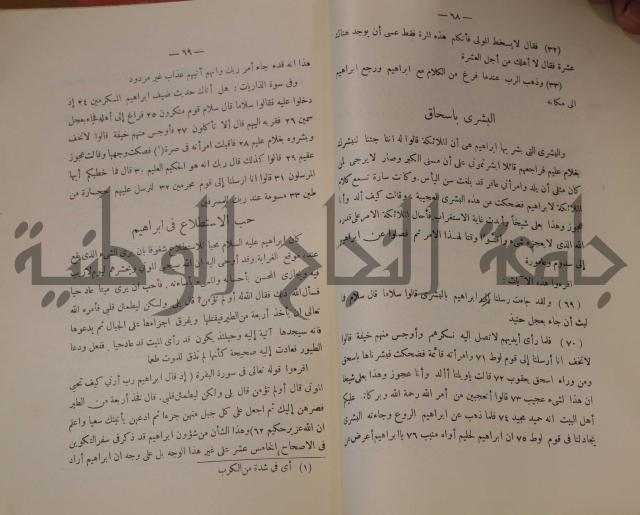 — ٦٨ —
(٣٢) فقال لا يسخط المولى فأتكلم هذه المرة فقط عسى أن يوجد هناك
عشرة فقال لا أهلك من أجل العشرة
(٣٣) وذهب الرب عندما فرغ من الكلام مع ابراهيم ورجع ابراهيم
الى مكانه
البشرى باسحاق
والبشرى التى بشر بها ابراهيم هى أن الملائكة قالوا له اننا جئنا لنبشرك
بغلام عليم فراجعهم قائلا ابشرتمونى على أن مسنى الكبر وصار لا يرجى لمن
كان مثلى أن يلد وامرأتى عاقر قد بلغت سن اليأس وكانت سارة تسمع كلام
الملائكة لابراهيم فضحكت من هذه البشرى العجيبة وقالت كيف ألد وأنا
عجوز وهذا بعلى شيخا وأبدت غاية الاستغراب فأحال الملائكة الامر على قدرة
الله الذى لا يعجزه شىء
الى سدوم وعامورة
اقرءوا هذه الآيات
(٦٩) ولقد جاءت رسلنا ابراهيم بالبشرى قالوا سلاما قال سلام فما
لبث أن جاء بعجل حنيذ
(٧٠) فلما رأى أيديهم لا تصل اليه نكرهم وأوجس منهم خيفة قالوا
لا تخف انا أرسلنا إلى قوم لوط ٧١ وامرأته قائمة فضحكت فبشرناها باسحق
ومن وراء اسحق يعقوب ٧٢ قالت ياويلتا أألد وأنا عجوز وهذا بعلى شيخا
ان هذا لشىء عجيب ٧٣ قالوا أتعجبين من أمر الله رحمة الله وبركاته عليكم
أهل البيت انه حميد مجيد ٧٤ فلما ذهب عن ابراهيم الروع وجاءته البشرى
يجادلنا فى قوم لوط ٧٥ ان ابراهيم لحليم أواه منيب ٧٦ ياابراهيم أعرض عن
— ٦٩ —
هذا انه قد جاء أمر ربك وانهم آتيهم عذاب غير مردود
وفى سورة الذاريات : هل أتاك حديث ضيف ابراهيم المكرمين ٢٤ إذ
دخلوا عليه فقالوا سلاما قال سلام قوم منكرون ٢٥ فراغ إلى أهله فجاء بعجل
سمين ٢٦ فقربه اليهم قال ألا تأكلون ٢٧ فأوجس منهم خيفة قالوا لا تخف
وبشروه بغلام عليم ٢٨ فأقبلت امرأته فى صرة (١) فصكت وجهها وقالت عجوز
عقيم ٢٩ قالوا كذلك قال ربك انه هو الحكيم العليم ٣٠ قال فما خطبكم أيها
المرسلون ٣١ قالوا انا ارسلنا إلى قوم مجرمين ٣٢ لنرسل عليهم حجارة من
طين ٣٣ مسومة عند ربك للمسرفين
حب الاستطلاع فى ابراهيم
كان ابراهيم عليه السلام محبا للاستطلاع شغوفا بان يرى الشىء الذى يقع
عنده موقع الغرابة وقد أوحى اليه ان الله سيحيي الموتى
فيه ويجازى المحسن بأحسانه والمسىء بأساءته فأحب أن يرى ميتا عاد حيا
فسأل الله ذلك فقال الله له أولم تؤمن؟ قال بلى ولكن ليطمئن قلبى فأمره الله
تعالى أن يأخذ أربعة من الطير فيقتلها ويفرق اجزاءها على الجبال ثم يدعوها
فانه سيجدها آتية إليه وحينئذ يكون قد رأى الميت قد عاد حيا ففعل ودعا
الطيور فعادت إليه صحيحة كأنها لم تذق للموت طعما
اقرءوا قوله تعالى فى سورة البقرة ( إذ قال ابراهيم رب أرنى كيف تحيى
الموتى قال أولم تؤمن قال بلى ولكن ليطمئن قلبى. قال فخذ أربعة من الطير
فصرهن إليك ثم اجعل على كل جبل منهن جزءا ثم ادعهن يأتينك سعيا واعلم
ان الله عزيز حكيم ٦٢) وهذا الشأن من شؤون ابراهيم قد ذكر فى سفر التكوين
فى الاصحاح الخامس عشر على غير هذا الوجه بل على وجه ان ابراهيم أراد
(١) أى فى شدة من الكرب
جامعة النجاح الوطنية